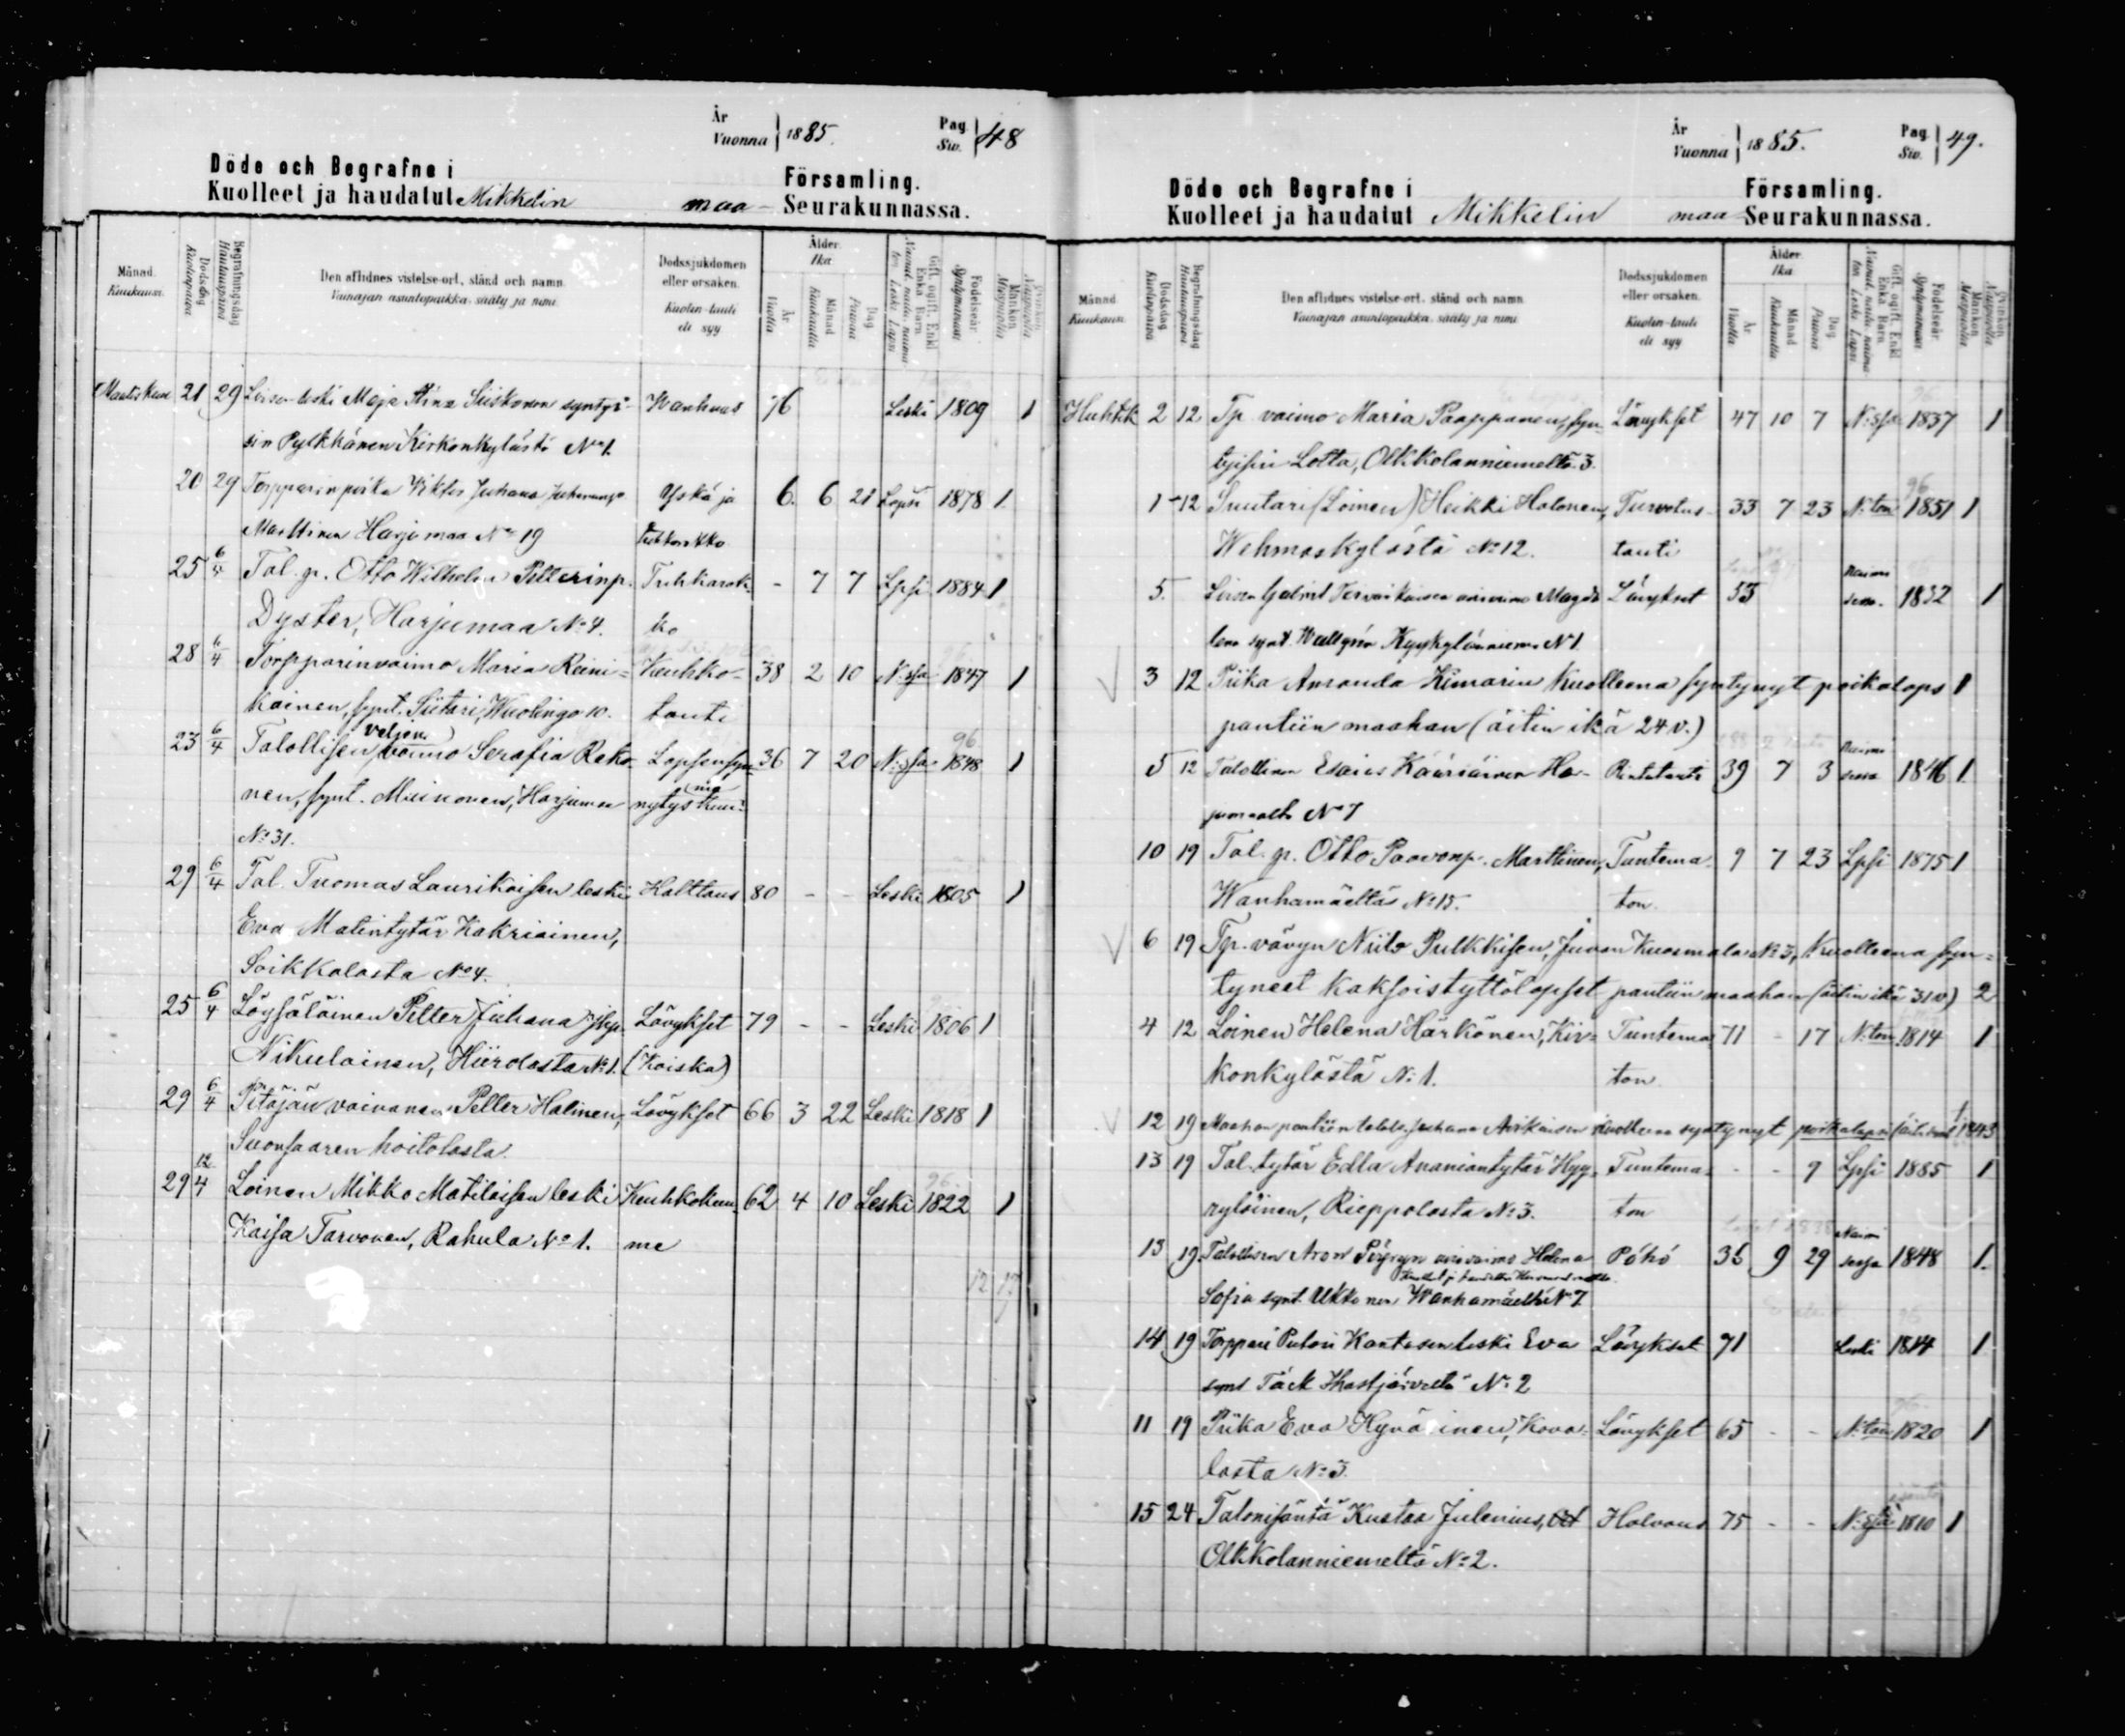 År
Vuonna 1885.
Pag.
Siv. 48
Döde och Begrafne i
Kuolleet ja haudatut Mikkelin maa- Församling.
Seurakunnassa.
Månad.
Kuukausi.
Dödsdag
Kuolinpäivä
Begrafningsdag
Hautauspäivä
Den aflidnes vistelse-ort, stånd och namn.
Vainajan asuntopaikka, sääty ja nimi.
Dödssjukdomen
eller orsaken.
Kuolin-tauti
eli syy
Ålder.
Ikä.
År
Vuotta
Månad
Kuukautta
Dag
Päivää
Gift, ogift, Enkl.
Enka Barn
Födelseår
Syntymävuosi
Mankön
Miespuolia
21 29 Loisen leski Maja Stina Siiskonen syntyi- Wanhuus 76 Leski 1809 1
sin Pylkkänen Kirkonkylästä No 1.
20 29 Torpparin poika Viktor Juhana Yskä ja 6. 6 21 Lapsi 1878 1.
Marttinen Harjumaa No 19
25 6/4 Tal. p. Otto Wilhelm Petterinp. Tuhkarok- - 7 7 Lpsi 1884 1
Dyster, Harjumaa No 4. ko
28 6/4 Torpparinvaimo Maria Reini- Keuhko- 38 2 10 N:ssa 1847 1
kainen, synt. Siitari, Wuolingo 10. tauti
23 6/4 Talollisen veljen vaimo Serafia Reko- Lapsensyn- 36 7 20 N:ssa 1848 1
nen, synt. Muinonen, Harjumaa
No 31.
29 6/4 Tal. Tuomas Laurikaisen leski Halttaus 80 - - Leski 1805 1
Eva Matintytär Kakriainen,
Soikkalasta No 4.
25 6/4 Löysäläinen Petter Juhana Yrj.p. Lävykset 79 - - Leski 1806 1
Nikulainen, Hiirolasta No 1. (Koiska)
29 6/4 Pitäjän vaivanen Petter Halinen, Lävykset 66 3 22 Leski 1818 1
Suonsaaren hoitolasta.
29 12/4 Loinen Mikko Matilaisen leski Keuhkokuu- 62 4 10 Leski 1822 1
Kaisa Tarvonen, Rahula No 1. me
12 17
År
Vuonna 1885.
Pag.
Siv. 49.
Döde och Begrafne i
Kuolleet ja haudatut Mikkelin maa Församling.
Seurakunnassa.
Månad.
Kuukausi.
Dödsdag
Kuolinpäivä
Begrafningsdag
Hautauspäivä
Den aflidnes vistelse-ort, stånd och namn.
Vainajan asuntopaikka, sääty ja nimi.
Dödssjukdomen
eller orsaken.
Kuolin-tauti
eli syy
Ålder.
Ikä.
År
Vuotta
Månad
Kuukautta
Dag
Päivää
Gift, og ogift, Enkl.
Enka Barn
Födelseår
Syntymävuosi
Mankön
Miespuolia
Huhtik 2 12 Tp. vaimo Maria Paappanen, syn- Lävykset 47 10 7 N:ssa 1837 1
tyisin Lotta, Olkkolanniemeltä 3.
1 12 Suutari (Loinen) Heikki Halonen, Turvotus- 33 7 23 N:ton 1851 1
Wehmaskylästä No 12. tauti
5. Loisen Tervakaisen vaimo Magda- Lävykset 53 1832 1
lena synt. Wallgrén Kyyhkylänniemi N 1
3 12 Piika Amanda Himarin kuolleena syntynyt poikalaps 1
pantiin maahan (äitin ikä 24 v.)
5 12 Talollinen Esaias Kääriäinen Ha- Rintatauti 39 7 3 1846 1.
No 7
10 19 Tal. p. Otto Paavonp. Marttinen, Tuntema- 9 7 23 Lpsi 1875 1
Wanhamäeltä No 15. ton.
6 19 Tp. vävyn Niilo Pulkkisen, Juvan Kuosmala No 3, kuolleena syn-
tyneet kaksoistyttölapset pantiin maahan (äitin ikä 31 v) 2
4 12 Loinen Helena Härkönen, Kir- Tuntema- 71 - 17 N:ton 1814 1
konkylästä No 1. ton
12 19 Maahan pantiin Juhana kuolleena syntynyt poikalapsi 1843
13 19 Tal. tytär Edla Ananiantytär Hyy- Tuntema- - - 9 Lpsi 1885 1
ryläinen, Rieppolasta No 3. ton
13 19 Talollisen Aron Pöyryn vaimo Helena Pöhö 36 9 29 1848 1.
Sofia synt. Ukkonen Wanhamäeltä N 7
14 19 Torppari Kontasen leski Eva Lävykset 71 Leski 1814 1
synt Täck No 2
11 19 Piika Eva Hyvärinen, Kova- Lävykset 65 - - N:ton 1820 1
lasta No 3.
15 24 Talonisäntä Kustaa Julenius, Halvaus 75 - - 1810 1
Olkkolanniemeltä No 2.